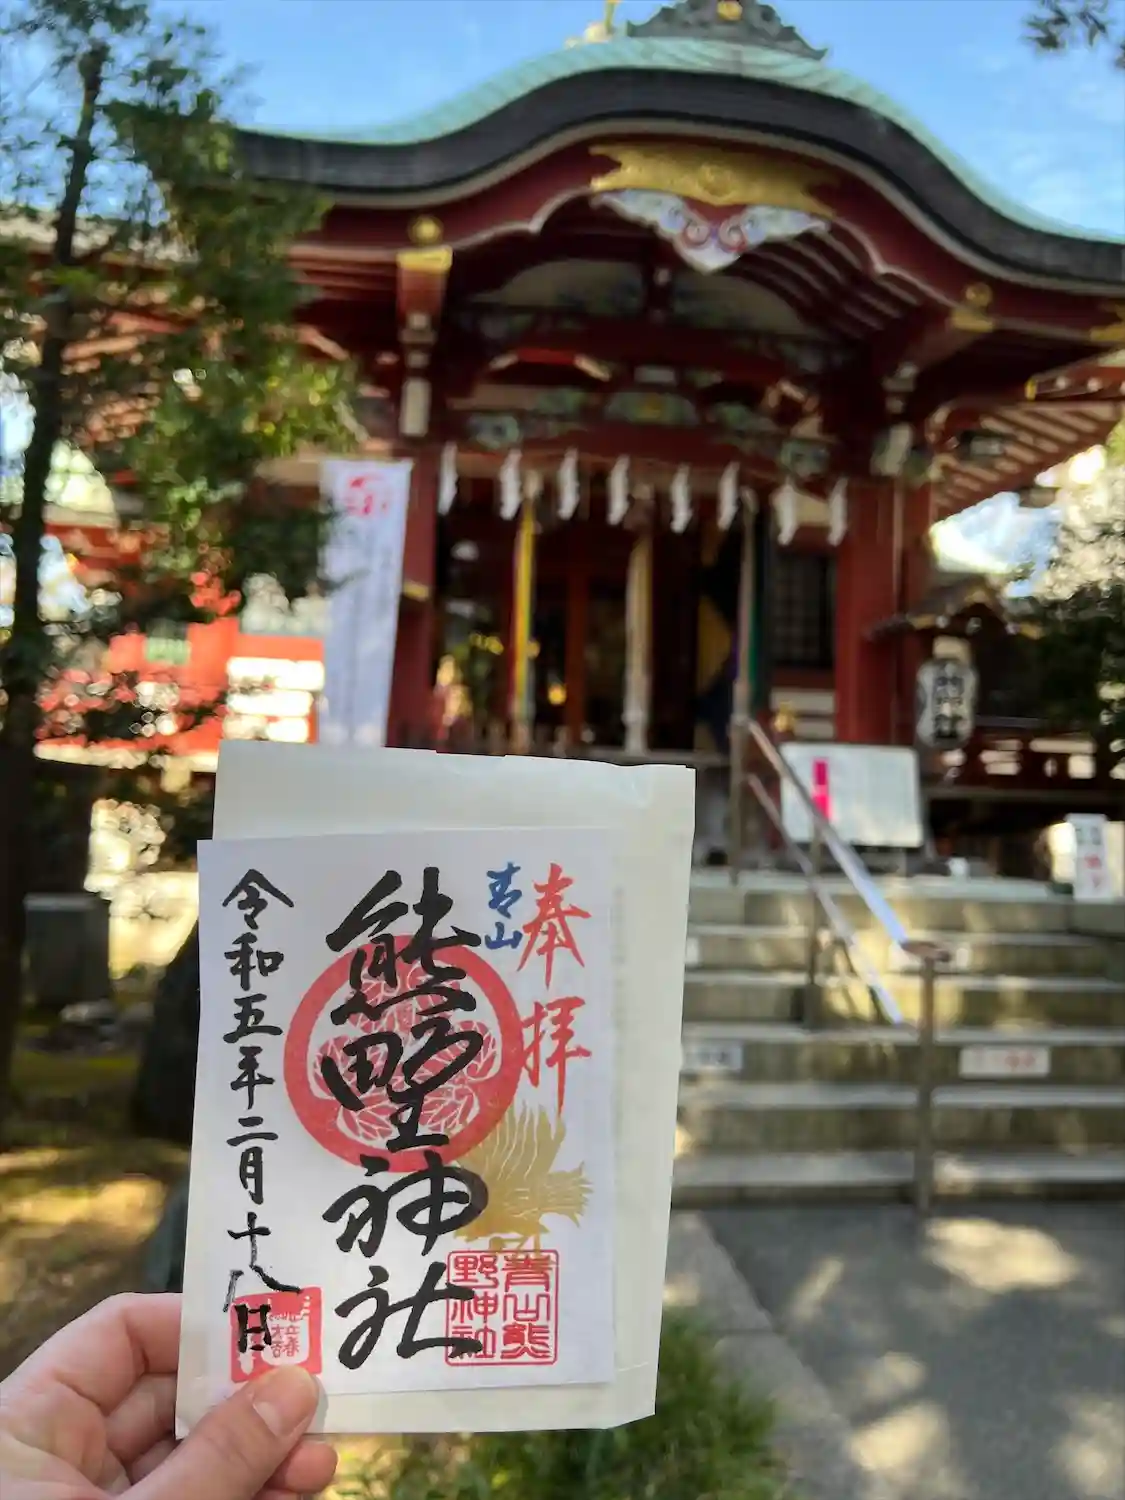 奉拝
青山
熊野神社
青山熊
野神社
令和五年二月十八日